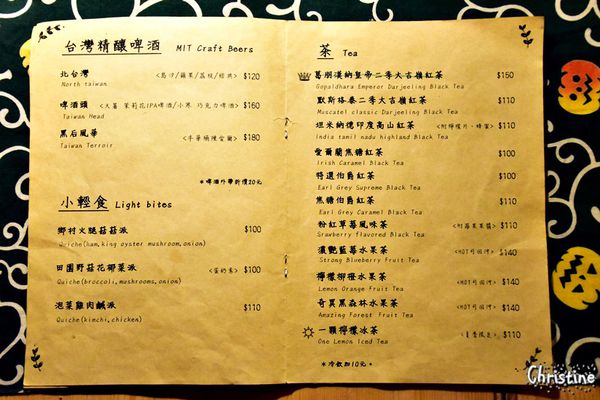 台灣精釀啤酒 MIT Craft Beers
北台灣 <島汐/蘋果/荔枝/經典> $120
North taiwan
啤酒頭 <大暑 茉莉花IPA啤酒/小寒 巧克力啤酒> $160
Taiwan Head
黑后風華 $180
Taiwan Terroir
*啤酒外帶折價20元
小輕食 Light bites
鄉村火腿菇菇派 $100
Quiche(ham,king oyster mushroom,onion)
田園野菇花椰菜派 <蛋奶素> $100
Quiche(broccoli,mushrooms,onion)
泡菜雞肉鹹派 $110
Quiche(kimchi,chicken)
茶 Tea
葛朋漢納皇帝二季大吉嶺紅茶 $150
Gopaldhara Emperor Darjeeling Black Tea
默斯格泰二季大吉嶺紅茶 $110
Muscatel classic Darjeeling Black Tea
坦米納德印度高山紅茶 <附檸檬片、蜂蜜> $110
India tamil nadu highland Black Tea
愛爾蘭焦糖紅茶 $100
Irish Caramel Black Tea
特選伯爵紅茶 $100
Earl Grey Supreme Black Tea
焦糖伯爵紅茶 $110
Earl Grey Caramel Black Tea
粉紅草莓風味茶 <附莓果果醬> $110
Srawberry flavored Black Tea
濃艷藍莓水果茶 <HOT可回沖> $140
Strong Blueberry Fruit Tea
檸檬柳橙水果茶 <HOT可回沖> $140
Lemon Orange Fruit Tea
奇異黑森林水果茶 <HOT可回沖> $140
Amazing Forest Fruit Tea
一顆檸檬冰茶 $110
One Lemon Iced Tea
*冷飲加10元。
Christine